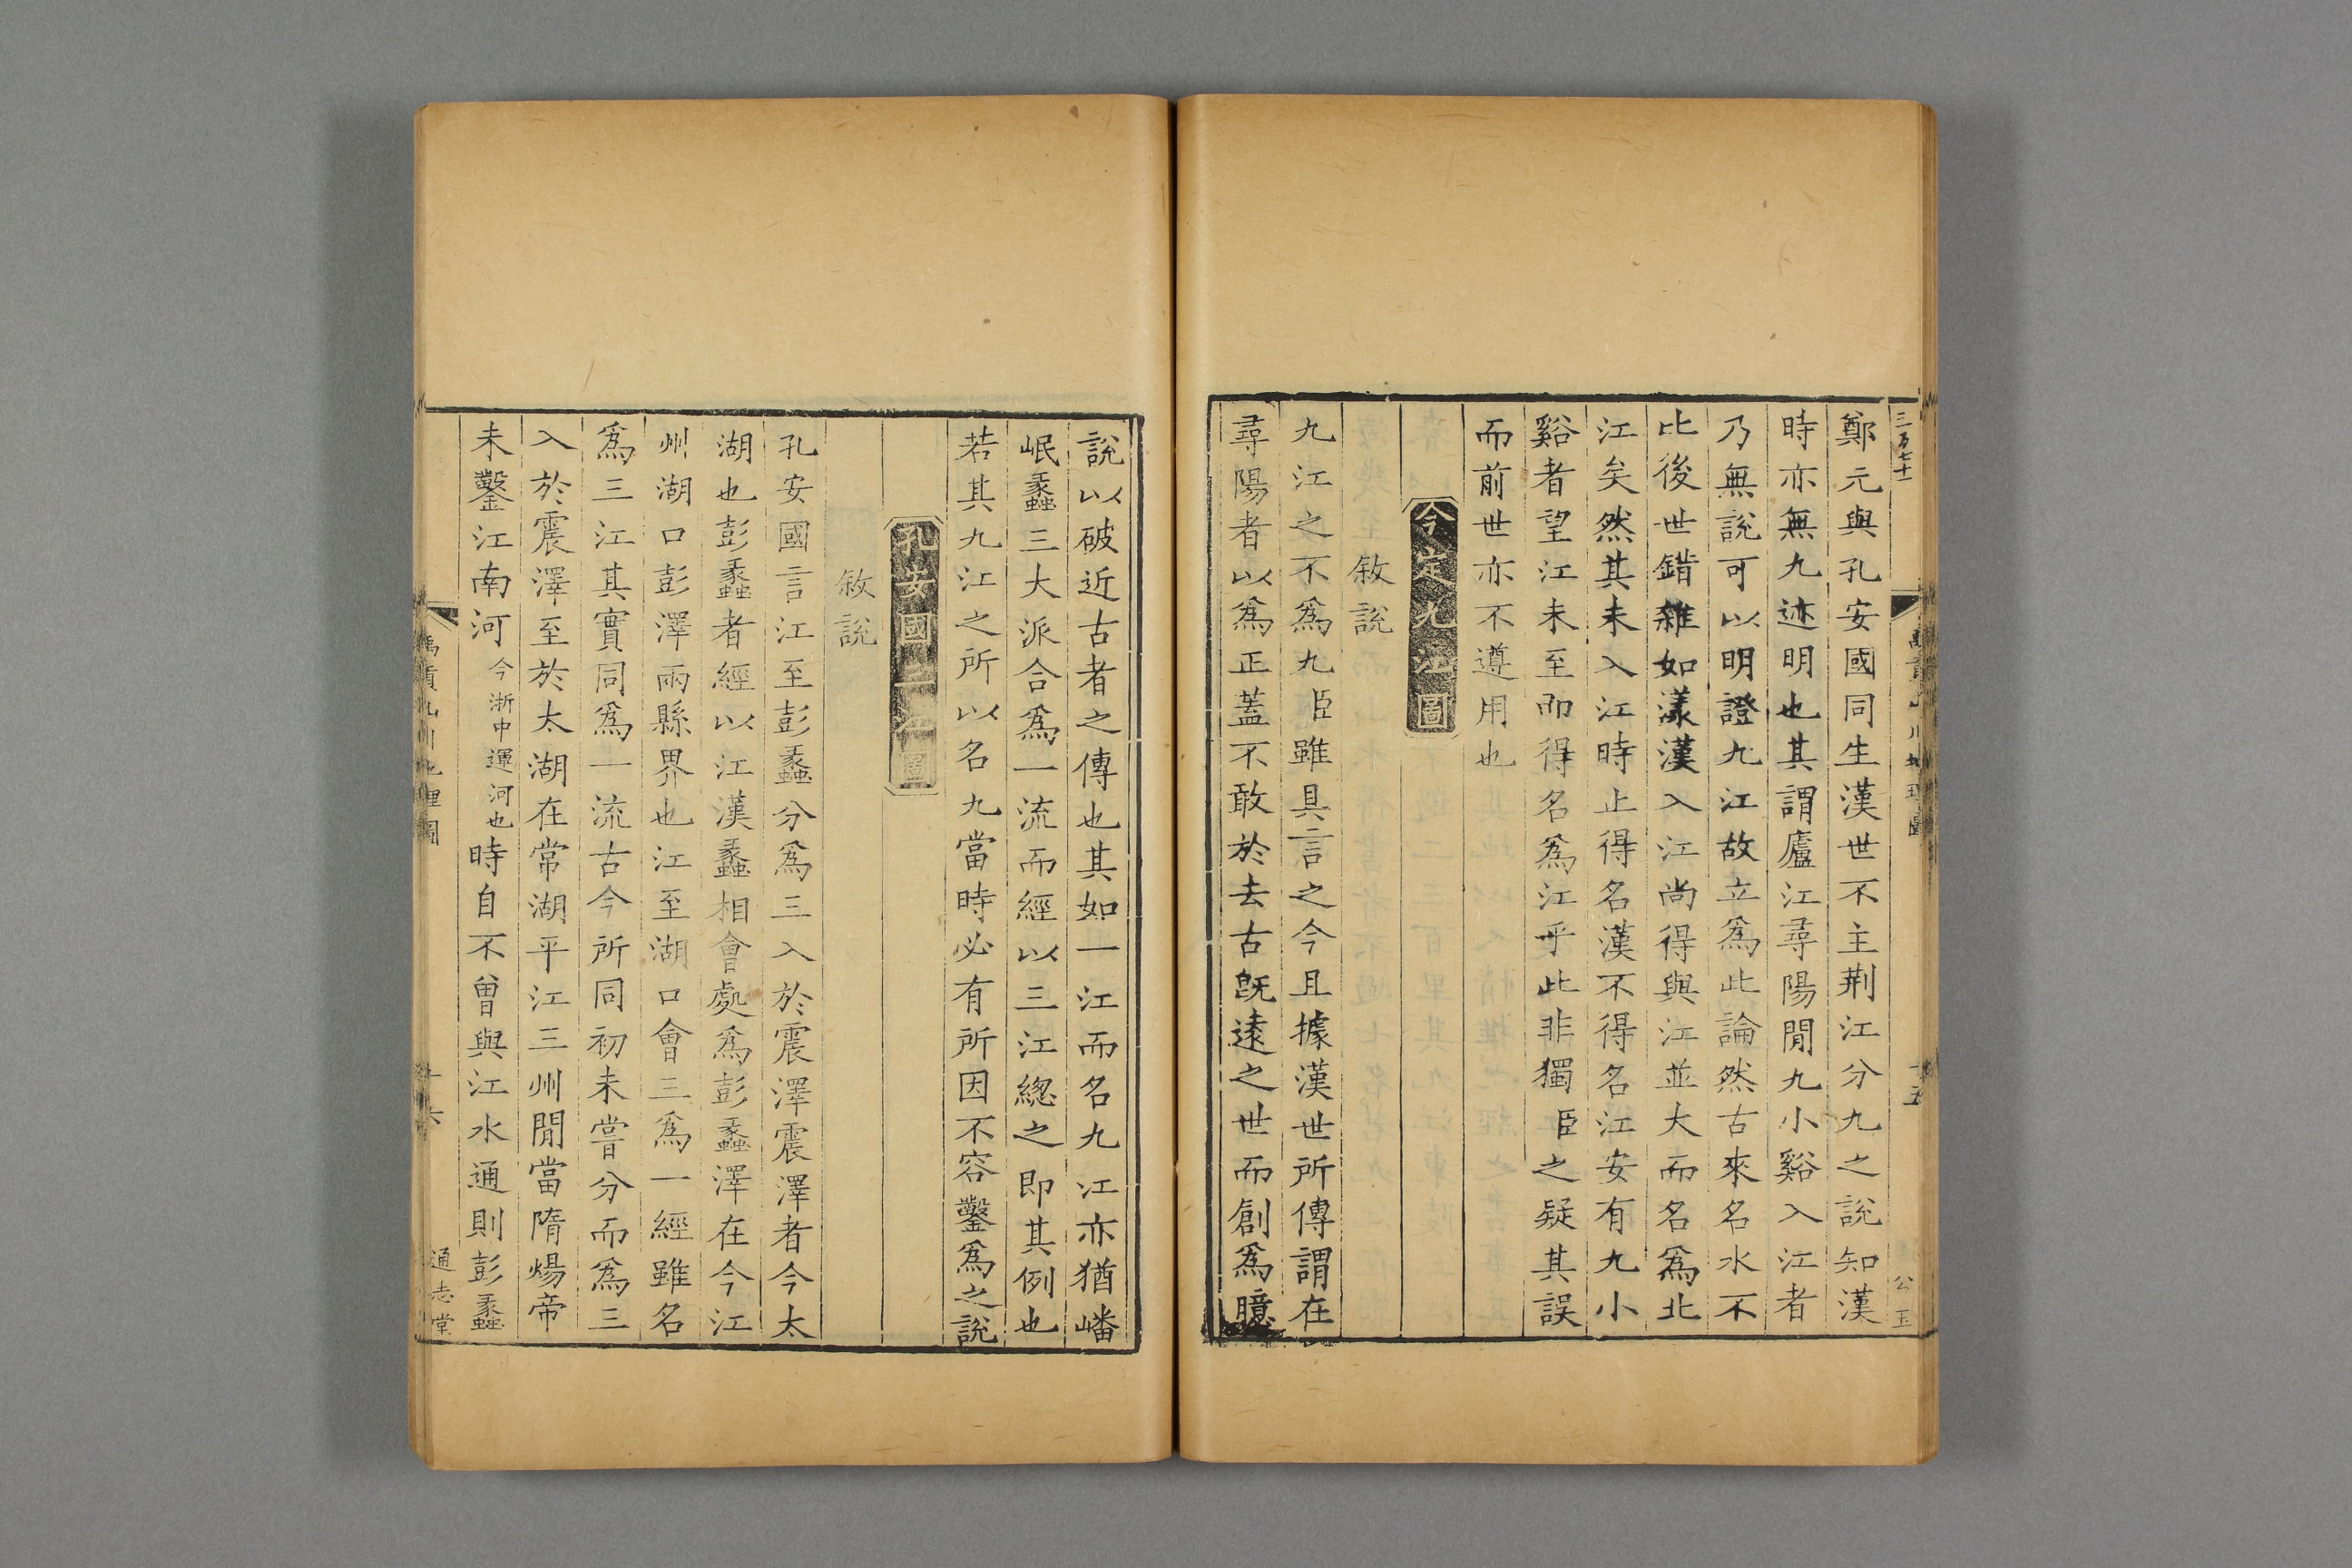 鄭元與孔安國同生漢世不主荆江分九之說知漢
時亦無九迹明也其謂廬江尋陽閒九小谿入江者
乃無說可以明證九江故立爲此論然古來名水不
比後世錯雜如漾漢入江尚得與江並大而名爲北
江矣然其未入江時止得名漢不得名江安有九小
谿者望江未至卽得名爲江乎此非獨臣之疑其誤
而前世亦不遵用也
今定九江圖
敘說
九江之不爲九臣雖具言之今且據漢世所傳謂在
尋陽者以爲正蓋不敢於去古旣遠之世而創爲臆
公玉
說以破近古者之傳也其如一江而名九江亦猶嶓
岷蠡三大派合爲一流而經以三江總之即其例也
若其九江之所以名九當時必有所因不容鑿爲之說
孔安國三江圖
敘說
孔安國言江至彭蠡分爲三入於震澤震澤者今太
湖也彭蠡者經以江漢蠡相會處爲彭蠡澤在今江
州湖口彭澤兩縣界也江至湖口會三爲一經雖名
爲三江其實同爲一流古今所同初未嘗分而爲三
入於震澤至於太湖在常湖平江三州閒當隋煬帝
未鑿江南河今浙中運河也時自不曾與江水通則彭蠡
禹貢山川地理圖
十六
通志堂